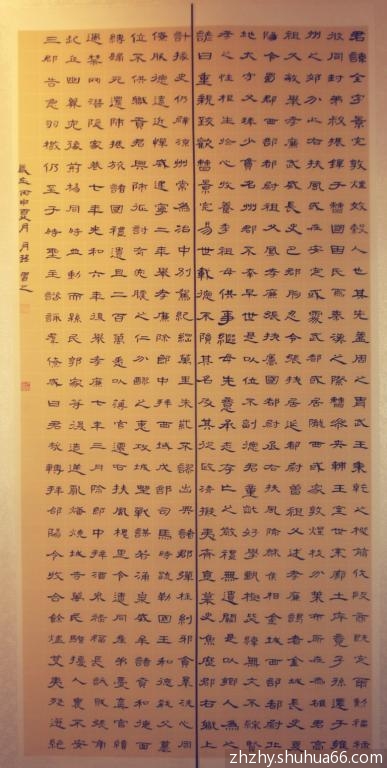 君諱全字景完敦煌效穀人也其先蓋周之胄武王秉乾之機翦伐殷商既定爾勳福祿
攸同封弟叔振鐸于曹國因氏焉秦漢之際曹參夾輔王室世宗廓土斥竟子孫遷于雍
州之郊分止右扶風或在安定或處武都或居隴西或家敦煌枝分葉布所在為雄君高
祖父敏舉孝廉武威長史巴郡朐忍令張掖居延都尉曾祖父述孝廉謁者金城長史夏
陽令蜀郡西部都尉祖父鳳孝廉張掖屬國都尉丞右扶風隃麋侯相金城西部都尉北
地太守父琫少貫名州郡不幸早世是以位不副德君童齔好學甄極毖緯無文不綜賢
孝之性根生於心收養季祖母供事繼母先意承志存亡之敬禮無遺闕是以鄉人為之
諺曰重親致歡曹景完易世載德不隕其名及其從政清擬夷齊直慕史魚歷郡右職上
計掾史仍辟涼州常為治中別駕紀綱萬里朱紫不謬出典諸郡彈枉糾邪貪暴洗心同
僚服德遠近憚威建寧二年舉孝廉除郎中拜西域戊部司馬時疏勒國王和德弒父篡
位不供職貢君興師征討有吮膿之仁分醪之惠攻城野戰謀若涌泉威牟諸賁和德面
縛歸死還師振旅諸國禮遺且二百萬悉以簿官遷右扶風槐里令遭同產弟憂棄官續
遇禁罔潛隱家巷七年光和六年復舉孝廉七年三月除郎中拜酒泉祿福長訞賊張角
起兵幽冀兗豫荊楊同時並動而縣民郭家等復造逆亂燔燒城寺萬民騷擾人裹不安
三郡告急羽檄仍至于時聖主諮諏群僚咸曰君哉轉拜郃陽令收合餘燼芟夷殘迸絕
歲在丙申夏月書之
zhzhy.shuhua66.com